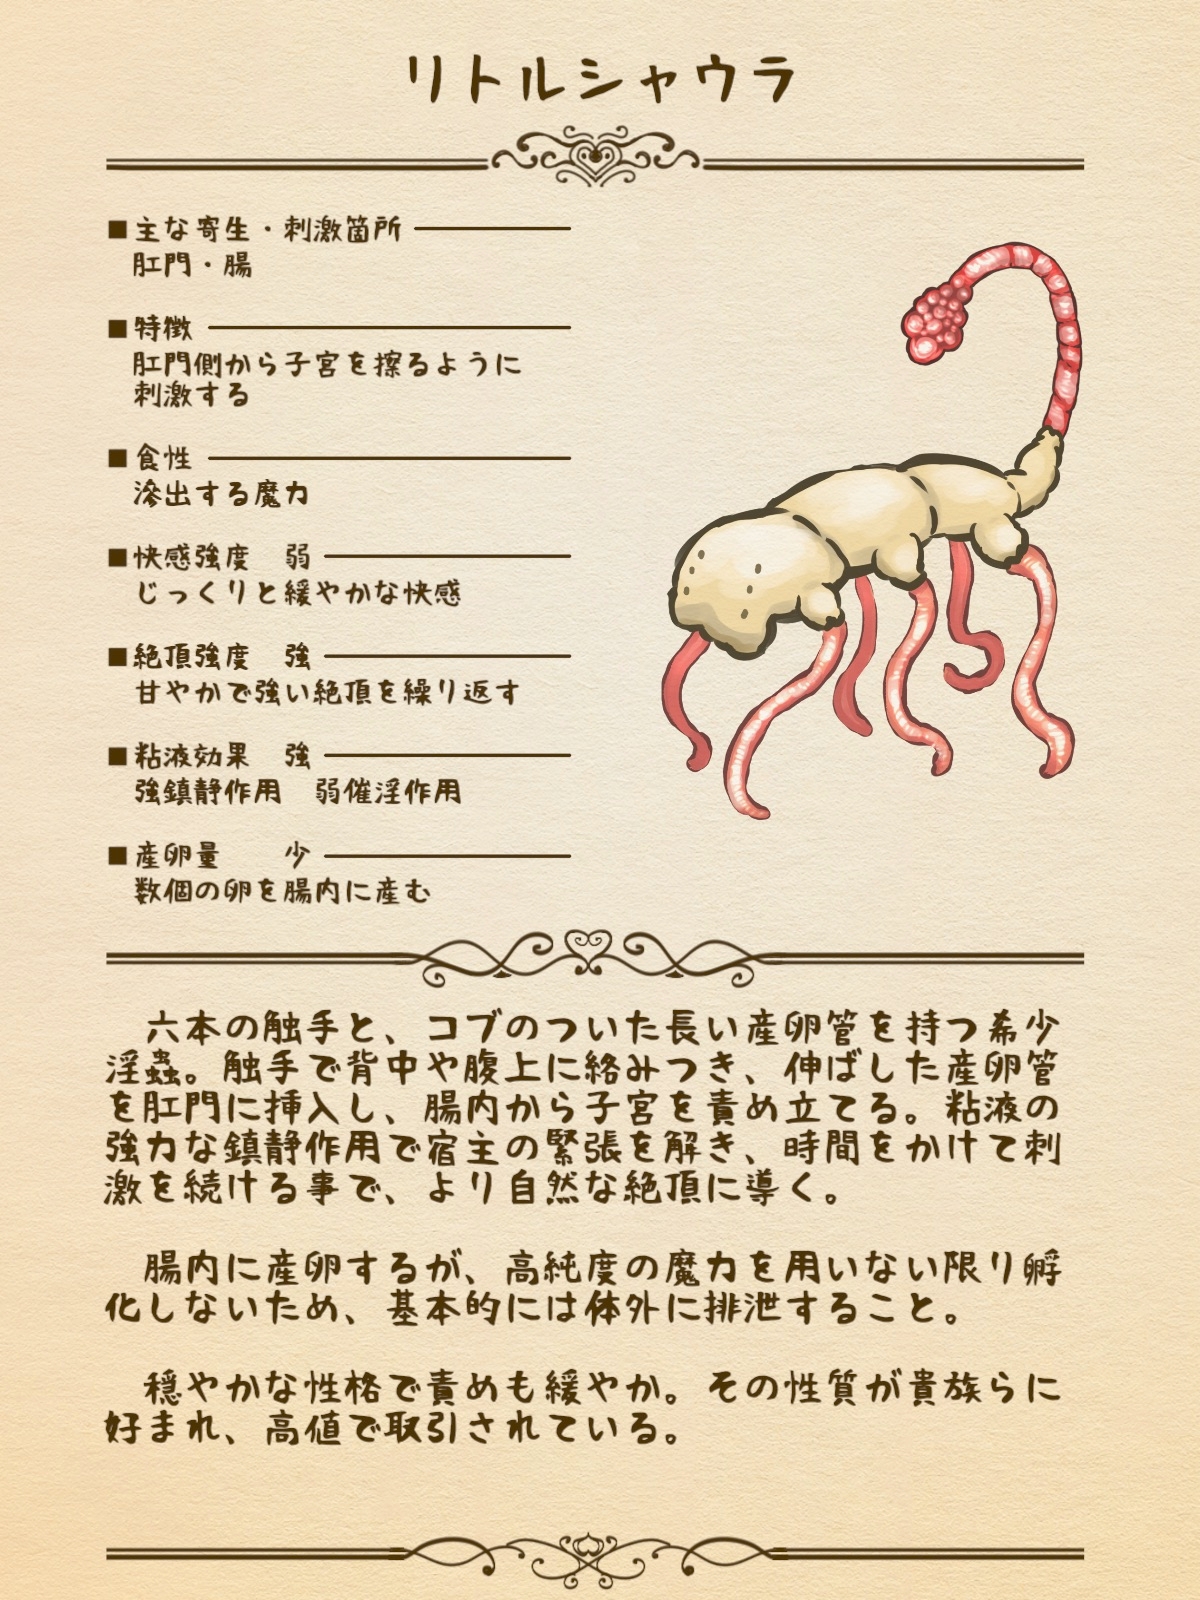 リトルシャウラ
■主な寄生・刺激箇所
肛門・腸
■特徴
肛門側から子宮を擦るように
刺激する
■食性
滲出する魔力
■快感強度　弱
じっくりと緩やかな快感
■絶頂強度　強
甘やかで強い絶頂を繰り返す
■粘液効果　強
強鎮静作用　弱催淫作用
■産卵量　　少
数個の卵を腸内に産む
　六本の触手と、コブのついた長い産卵管を持つ希少
淫蟲。触手で背中や腹上に絡みつき、伸ばした産卵管
を肛門に挿入し、腸内から子宮を責め立てる。粘液の
強力な鎮静作用で宿主の緊張を解き、時間をかけて刺
激を続ける事で、より自然な絶頂に導く。
　腸内に産卵するが、高純度の魔力を用いない限り孵
化しないため、基本的には体外に排泄すること。
　穏やかな性格で責めも緩やか。その性質が貴族らに
好まれ、高値で取引されている。